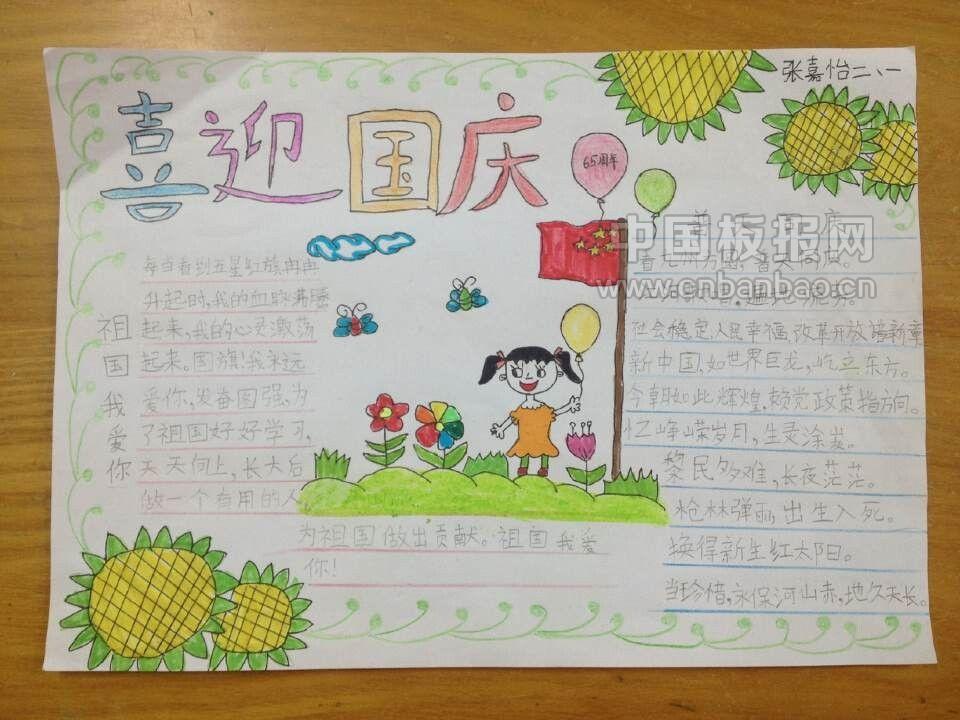 张嘉怡二、一
喜迎国庆
65周年
中国板报网
www.cnbanbao.cn
祖国我爱你
每当看到五星红旗冉冉
升起时,我的血脉沸腾
起来,我的心灵激荡
起来。国旗!我永远
爱你,发奋图强,为
了祖国好好学习,
天天向上,长大后
做一个有用的人,
为祖国做出贡献。祖国我爱
你!
社会稳定,人民幸福,改革开放谱新章
新中国,如世界巨龙,屹立东方。
今朝如此辉煌,赖党政策指方向。
忆峥嵘岁月,生灵涂炭。
黎民多难,长夜茫茫。
枪林弹雨,出生入死。
换得新生红太阳。
当珍惜,永保河山赤,地久天长。